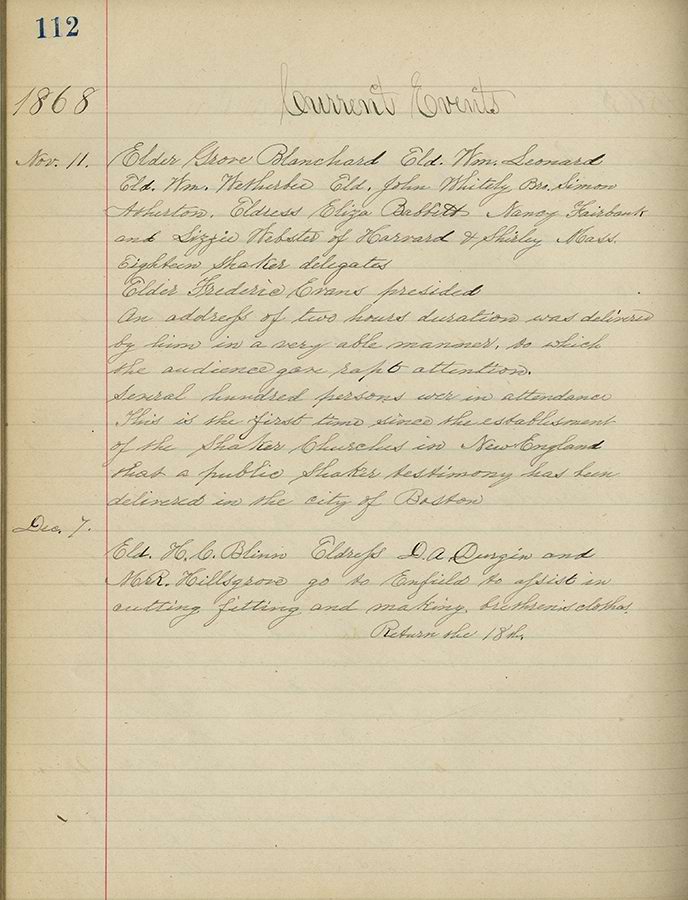 112
1868 Current Events
Nov. 11. Elder Grove Blanchard Eld. Wm. Leonard
Eld. Wm. Wetherbee Eld. John Whitely Bro. Simon
Atherton, Eldress Eliza Babbitt Nancy Fairbank
and Lizzie Webster of Harvard & Shirley Mass.
Eighteen Shaker delegates
Elder Frederic Evans presided
An address of two hours duration was delivered
by him in a very able manner, to which
the audience gave rapt attention.
Several hundred persons wer in attendance
This is the first time since the establisment
of the Shaker Churches in New England
that a public Shaker testimony has been
delivered in the city of Boston
Dec. 7.
Eld. H. C. Blinn Eldress D. A. Durgin and
M. R. Hillsgrove go to Enfield to assist in
cutting fitting and making brethren's clothes.
Return the 18th.